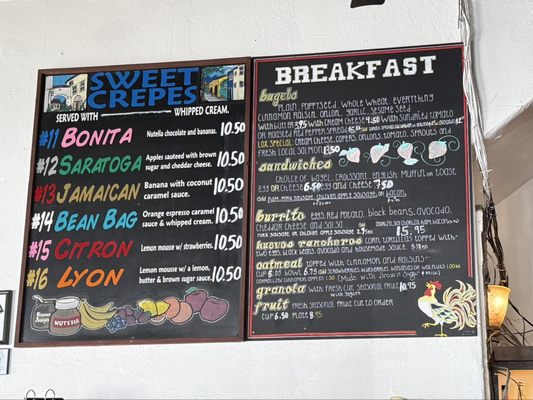 SWEET
CREPES
SERVED WITH WHIPPED CREAM.
#11 BONITA Nutella chocolate and bananas. 10.50
#12 SARATOGA Apples sauteed with brown
sugar and cheddar cheese. 10.50
#13 JAMAICAN Banana with coconut
caramel sauce. 10.50
#14 BEAN BAG Orange espresso caramel
sauce & whipped cream. 10.50
#15 CITRON Lemon mousse w/ strawberries. 10.50
#16 LYON Lemon mousse w/ a lemon,
butter & brown sugar sauce. 10.50
NUTELLA
BREAKFAST
bagels
Plain, poppyseed, whole wheat, everything
cinnamon raisin, onion, garlic, sesame seed
with butter 3.95 with cream cheese 4.50 with sundried tomato
or roasted red pepper spread
Lox Special: cream cheese, capers, onions, tomato, sprouts and
fresh local salmon
sandwiches
choice of bagel, croissant, english muffin or toast
egg or cheese 6.50 egg and cheese 7.50
add ham, pork sausage, chicken apple sausage, or bacon
burrito eggs, red potato, black beans, avocado,
cheddar cheese and salsa
pork sausage or chicken apple sausage 2.95 15.95
huevos rancheros corn tortillas topped with
two eggs, black beans, avocado and housemade sauce
oatmeal topped with cinnamon and raisins
cup 5.00 bowl 6.75 add strawberries, blueberries, bananas or walnuts
granola with fresh cut seasonal fruit 10.95
with yogurt
fruit fresh seasonal fruit cut to order
cup 6.50 plate 8.95